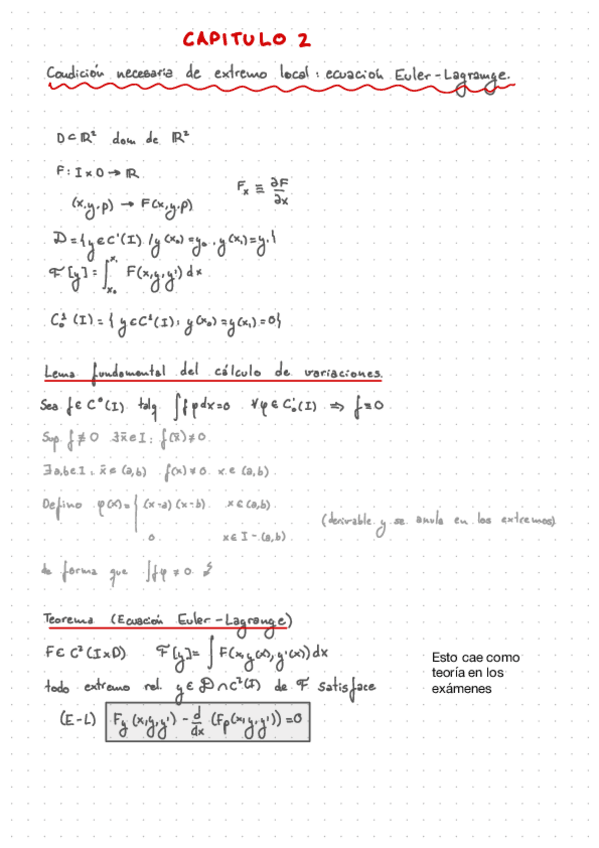 CAPITULO 2
Condición necesaria de extremo local: ecuacion Euler-Lagrange.
D⊂ℝ² dom de ℝ²
F: I×D→ℝ
F_x ≡ ∂F/∂x
(x,y,p) → F(x,y,p)
D={y∈C'(I) / y(x₀)=y₀, y(x₁)=y₁}
F[y]=∫_{x₀}^{x₁} F(x,y,y')dx
C₀¹(I)={y∈C¹(I): y(x₀)=y(x₁)=0}
Lema fundamental del cálculo de variaciones.
Sea f∈C⁰(I) talq ∫fφdx=0 ∀φ∈C₀'(I) ⇒ f≡0
Sup f≢0 ∃x̄∈I: f(x̄)≠0.
∃a,b∈I: x̄∈(a,b) f(x)≠0 x∈(a,b).
Defino φ(x)={ (x-a)(x-b) x∈(a,b).
0 x∈I-(a,b).
(derivable y se anula en los extremos)
de forma que ∫fφ≠0 ↯
Teorema (Ecuación Euler-Lagrange)
F∈C²(I×D) F[y]=∫F(x,y(x),y'(x))dx
todo extremo rel. y∈D∩C²(I) de F satisface
(E-L) F_y(x,y,y') - d/dx (F_p(x,y,y'))=0
Esto cae como
teoría en los
exámenes